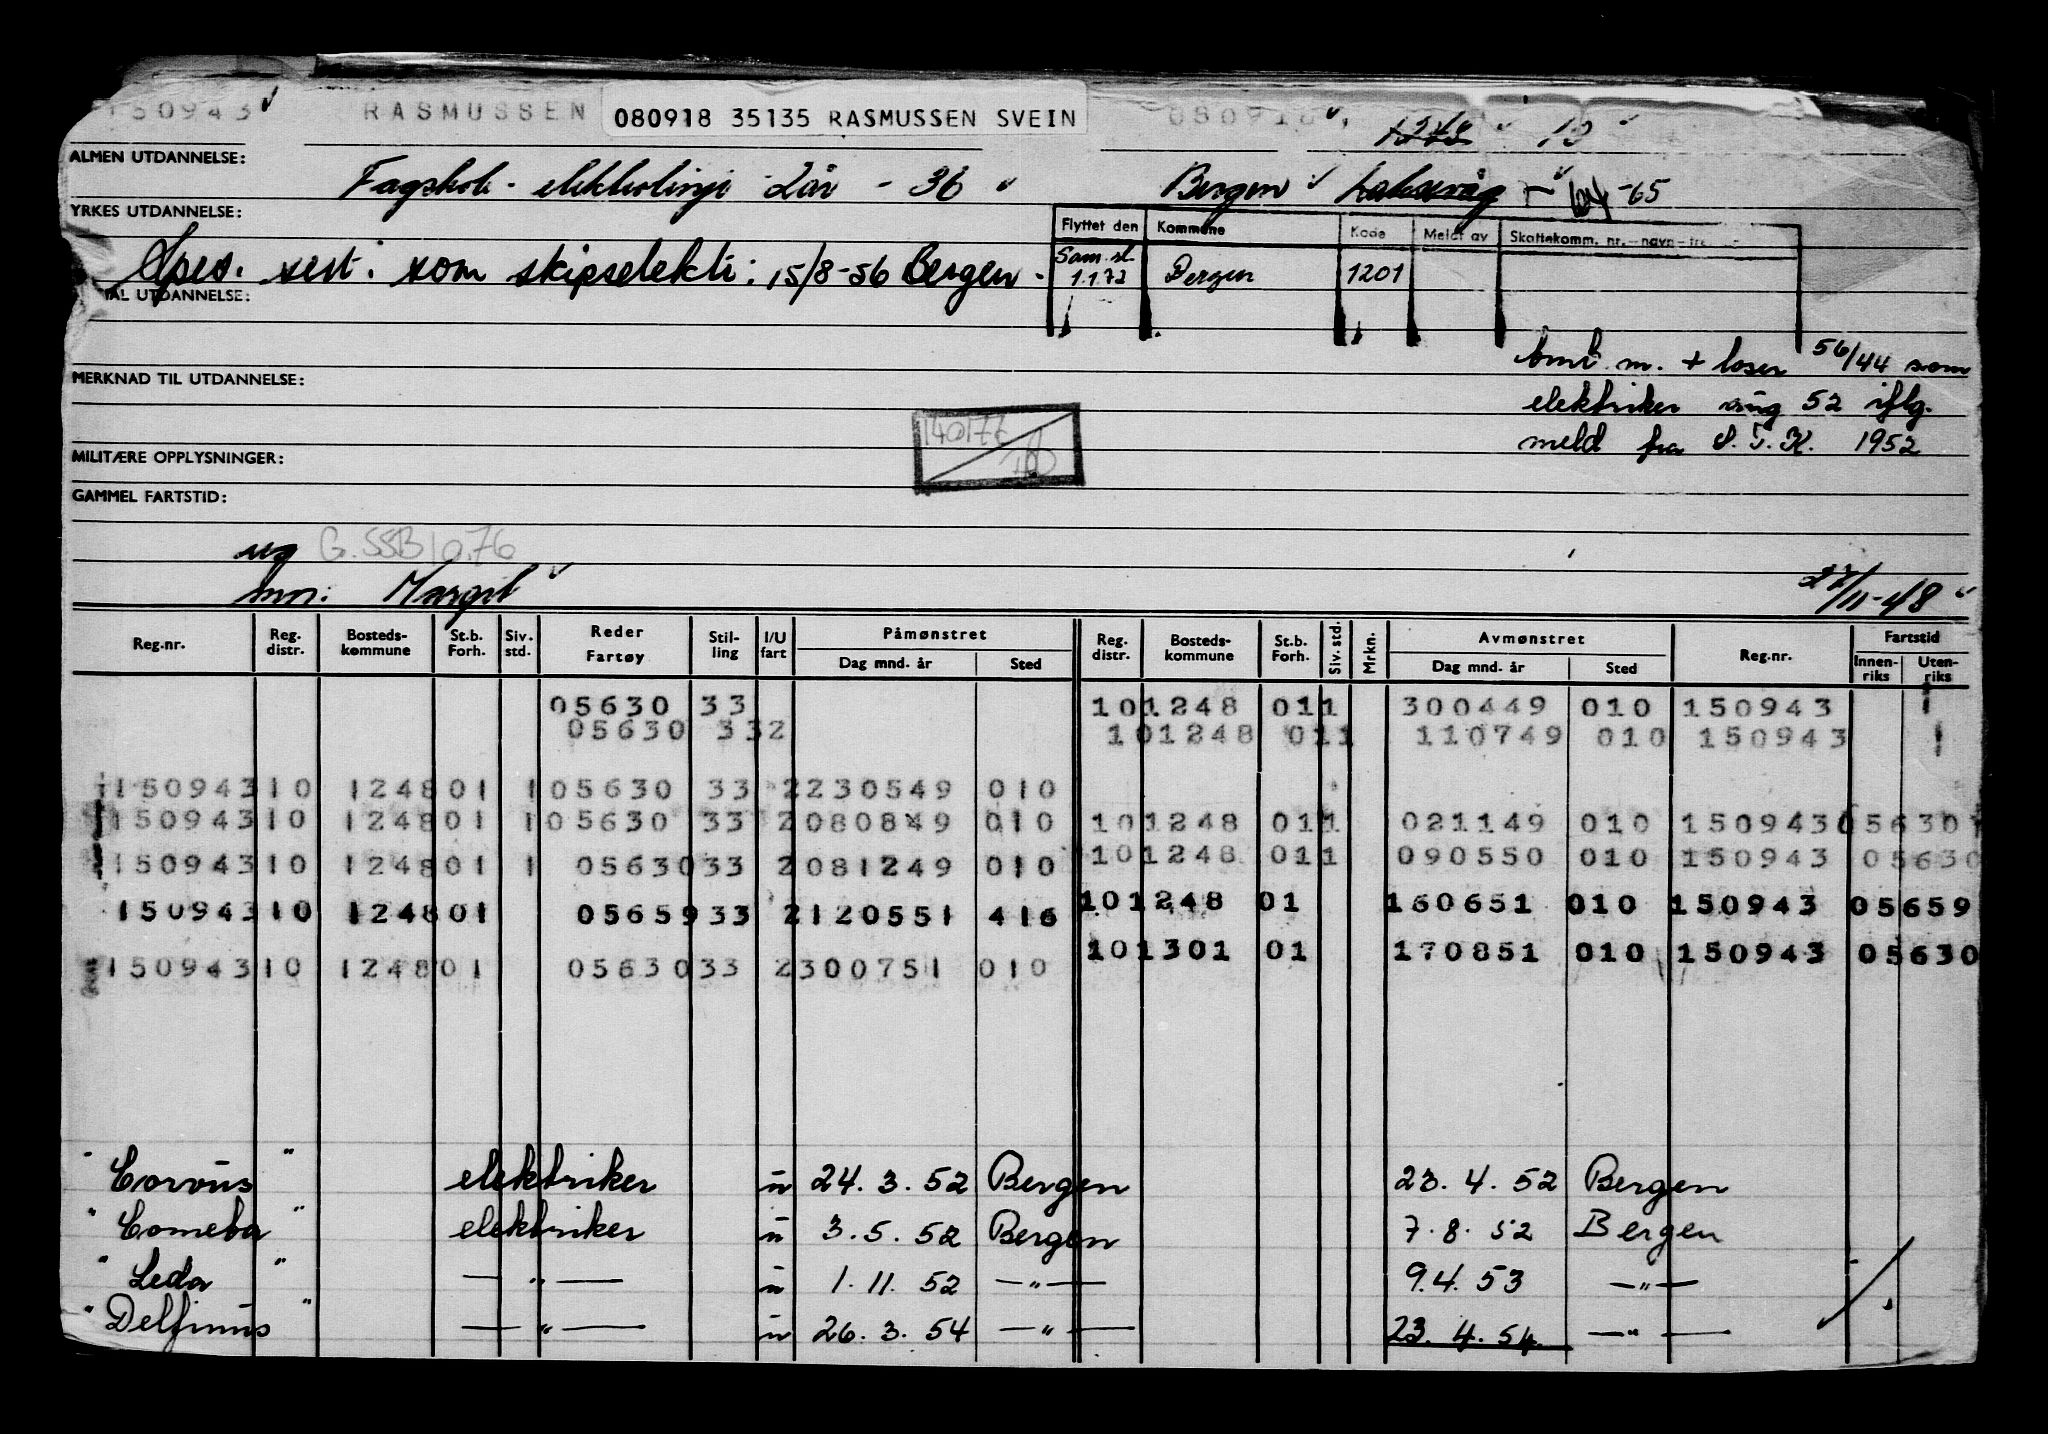 150943 RASMUSSEN 080918 35135 RASMUSSEN SVEIN 080918
1248 10
ALMEN UTDANNELSE:
Fagskole - elektrolinje 2 år - 36 Bergen Laksevåg -65
YRKES UTDANNELSE:
Flyttet den Kommune Kode Meldt av Skattekomm. nr. - navn -
Spes. sert. som skipselektr: 15/8-56 Bergen. Sam.sl. 1.1.72 Bergen 1201
AL UTDANNELSE:
m. + loser 56/44 som
MERKNAD TIL UTDANNELSE:
elektriker aug 52 iflg.
140177
meld fra S.T.K. 1952
MILITÆRE OPPLYSNINGER:
GAMMEL FARTSTID:
ug G. SSB 10.76
mor: Margit 27/11-48
Reg.nr. Reg. distr. Bosteds- kommune St.b. Forh. Siv. std. Reder Fartøy Stil- ling I/U fart Påmønstret Dag mnd. år Sted Reg. distr. Bosteds- kommune St.b. Forh. Siv. std. Mrkn. Avmønstret Dag mnd. år Sted Reg.nr. Fartstid Innen- riks Uten- riks
05630 33 101248 011 300449 010 150943
05630 332 101248 011 110749 010 150943
150943 10 124801 1 05630 33 2230549 010
150943 10 124801 1 05630 33 2080849 010 101248 011 021149 010 150943 05630
150943 10 124801 1 05630 33 2081249 010 101248 011 090550 010 150943 05630
150943 10 124801 05659 33 2120551 416 101248 01 160651 010 150943 05659
150943 10 124801 05630 33 2300751 010 101301 01 170851 010 150943 05630
" Corvus " elektriker u 24.3.52 Bergen 23.4.52 Bergen
" Cometa " elektriker u 3.5.52 Bergen 7.8.52 Bergen
" Leda " — " — u 1.11.52 — " — 9.4.53 — " —
" Delfinus " — " — u 26.3.54 — " — 23.4.54 — " —